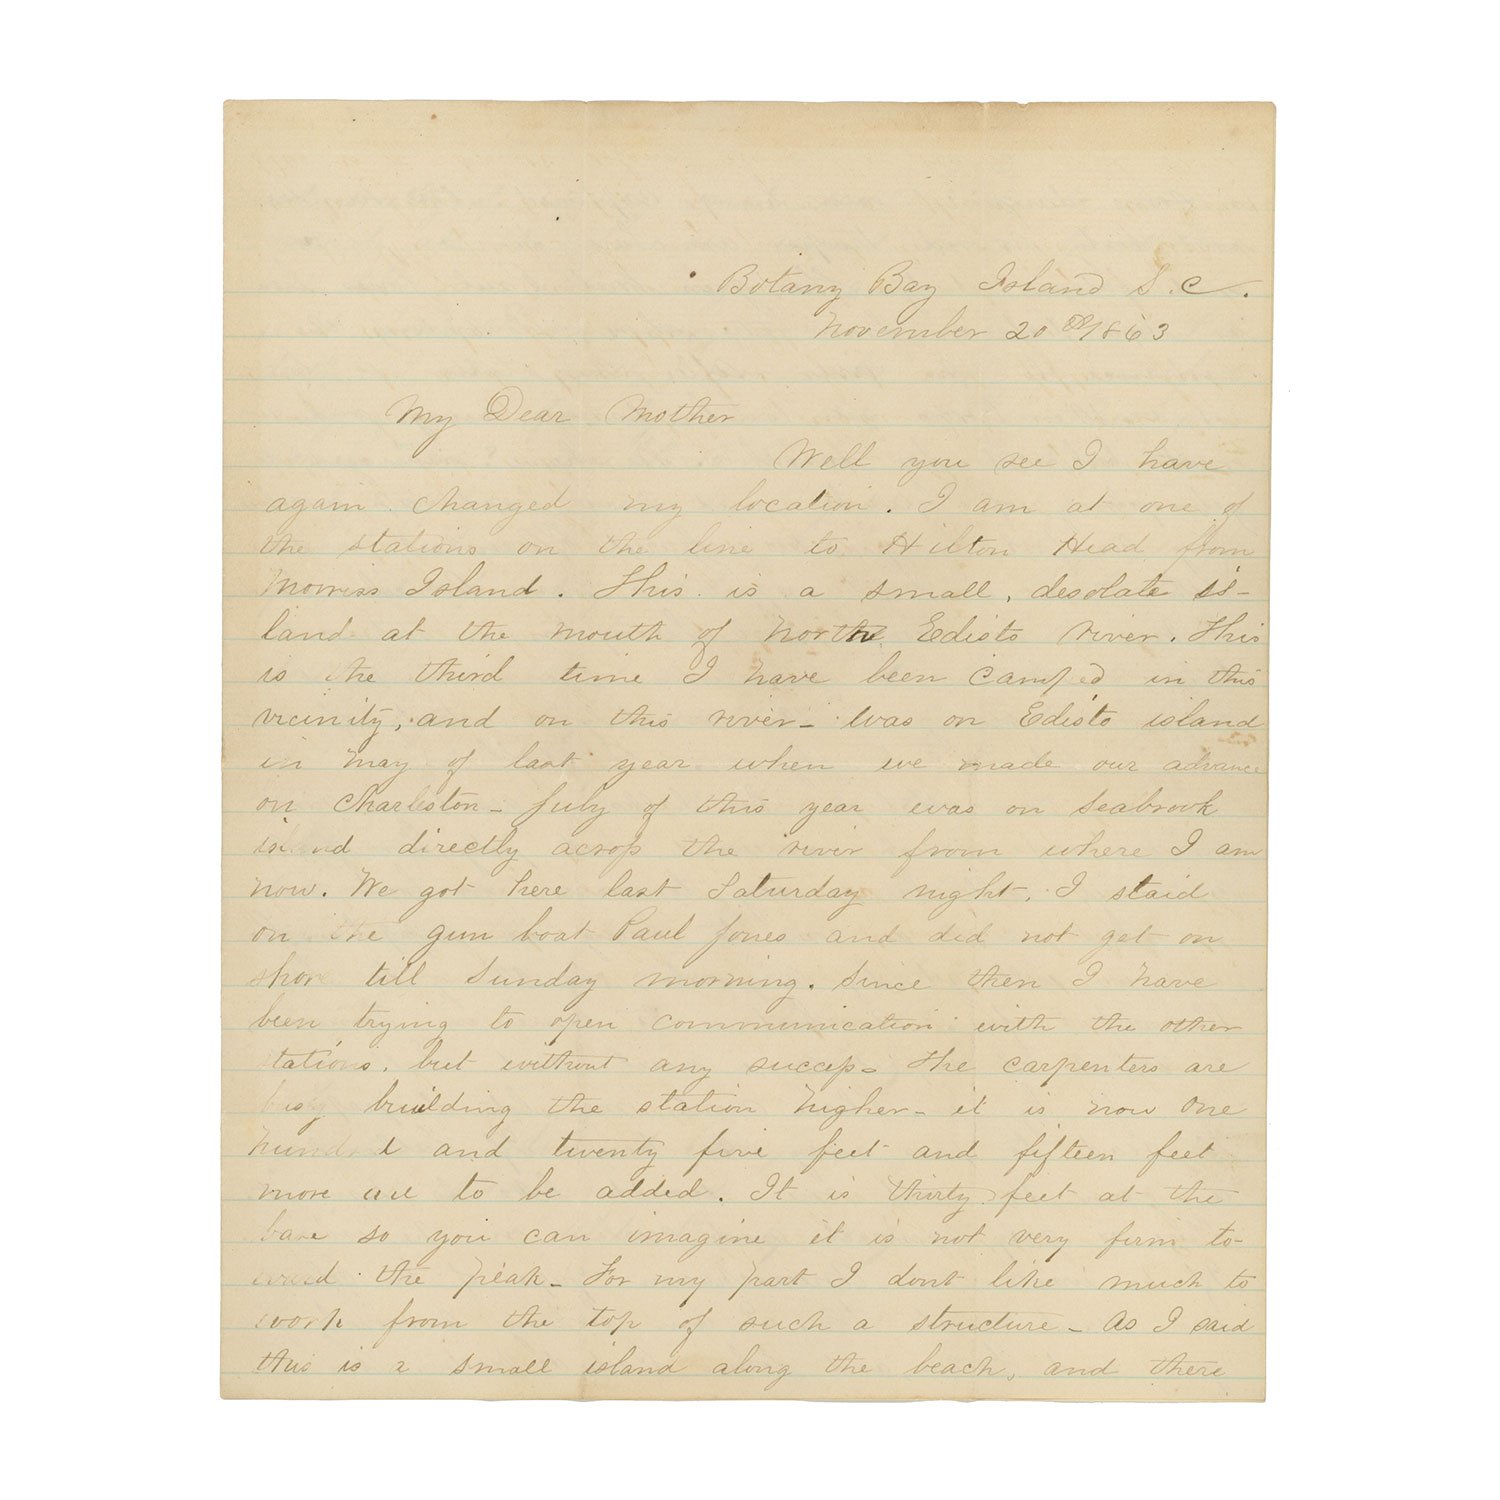 Botany Bay Island S.C.
November 20th 1863
My Dear Mother
Well you see I have
again changed my location. I am at one of
the stations on the line to Hilton Head from
Morriss Island. This is a small, desolate is-
land at the mouth of North Edisto river. This
is the third time I have been camped in this
vicinity, and on this river - was on Edisto island
in May of last year when we made our advance
on Charleston - July of this year was on Seabrook
island directly across the river from where I am
now. We got here last Saturday night. I staid
on the gun boat Paul Jones and did not get on
shore till Sunday morning. Since then I have
been trying to open communication with the other
stations, but without any success - The carpenters are
busy building the station higher - it is now one
hundred and twenty five feet and fifteen feet
more are to be added. It is thirty feet at the
base so you can imagine it is not very firm to-
ward the peak - For my part I dont like much to
work from the top of such a structure - As I said
this is a small island along the beach, and there